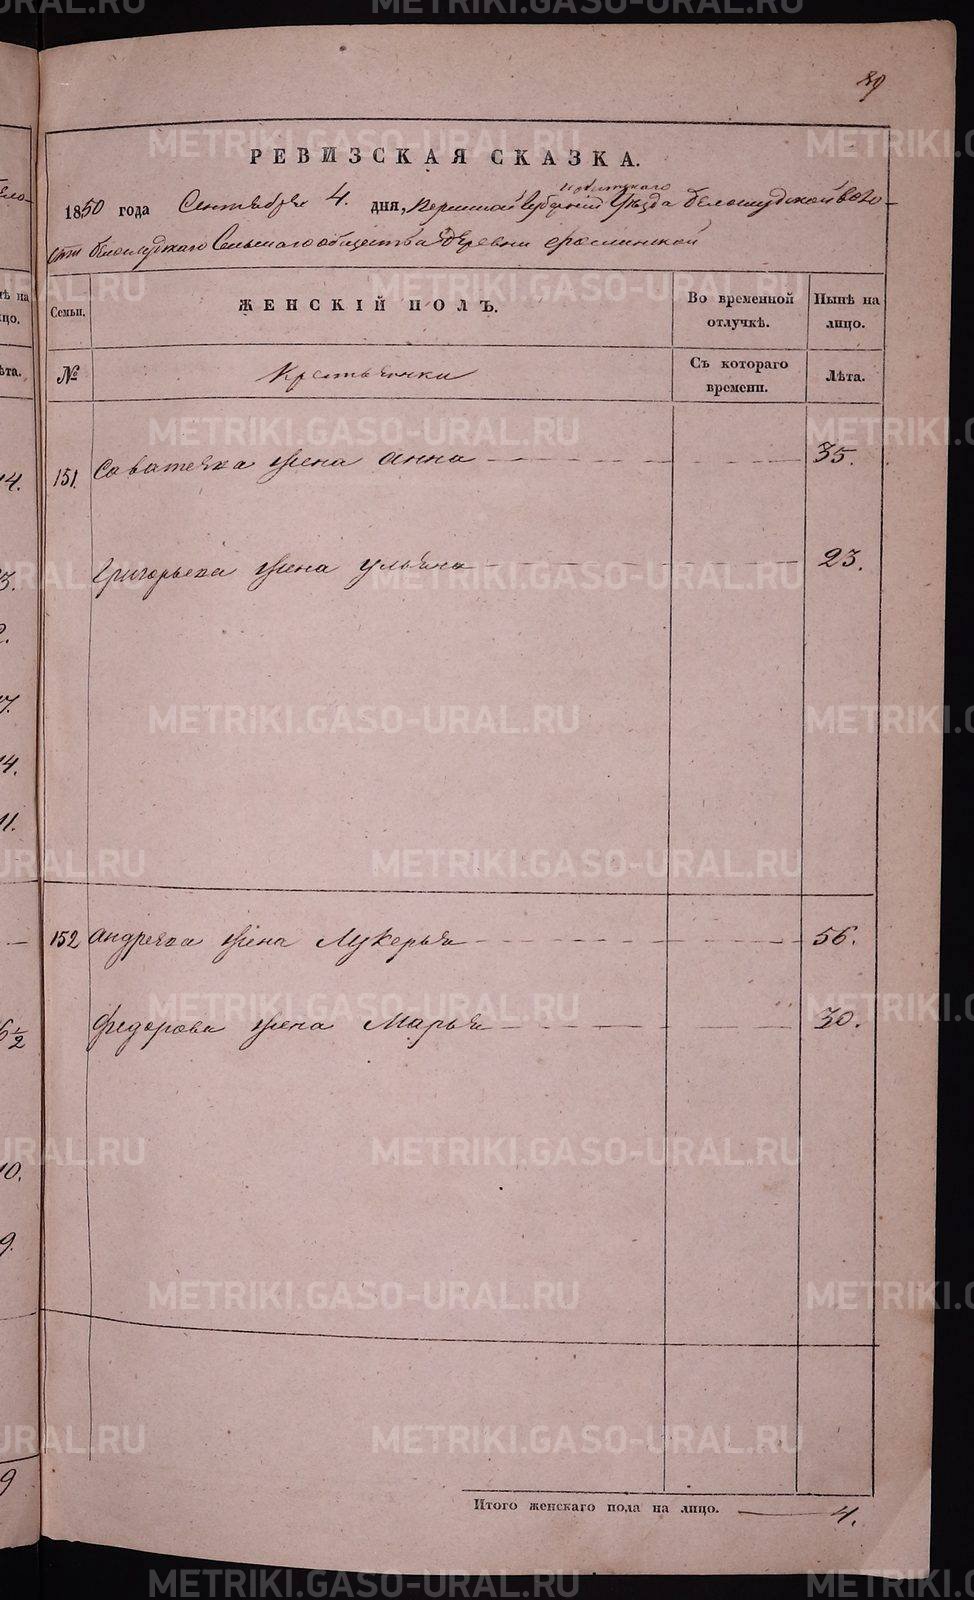 89
РЕВИЗСКАЯ СКАЗКА.
Ирбитскаго
1850 года Сентября 4. дня, Пермской Губерніи Уѣзда Белослудской воло-
сти Белослудскаго Сельскаго общества деревни
ЖЕНСКІЙ ПОЛЪ.
Семьи.
Во временной отлучкѣ.
Нынѣ на лицо.
№
Крестьянки
Съ котораго времени.
Лѣта.
151. Саватеева жена Анна 35.
Григорьева жена Ульяна 23.
152 Андреева жена Лукерья 56.
Федорова жена Марья 30.
Итого женскаго пола на лицо. 4.
METRIKI.GASO-URAL.RU